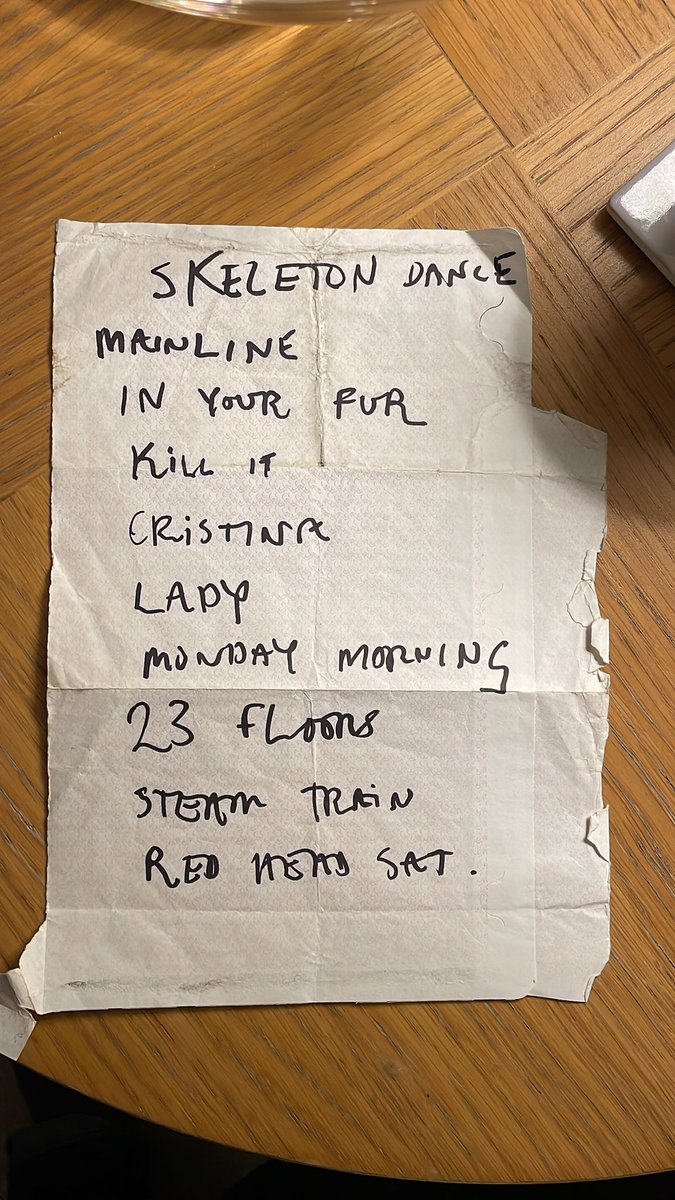 SKELETON DANCE
MAINLINE
IN YOUR FUR
KiLL IT
CRiSTINA
LADY
MONDAY MORNING
23 FLOORS
STEAM TRAiN
RED HEAD SAT.